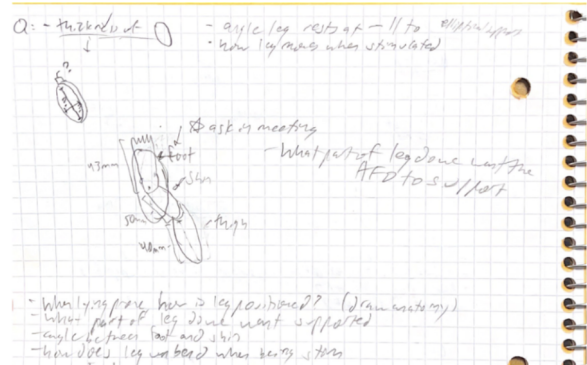 Q: - thickness of
- angle leg rests at - || to elliptical support
- how leg moves when stimulated
?
ask in meeting
foot
- what part of leg do we want the
AFO to support
43mm
Shin
50mm
thigh
40mm
- When lying prone how is leg positioned? (draw anatomy)
- what part of leg do we want supported
- angle between foot and shin
- how does leg unbend when being stim